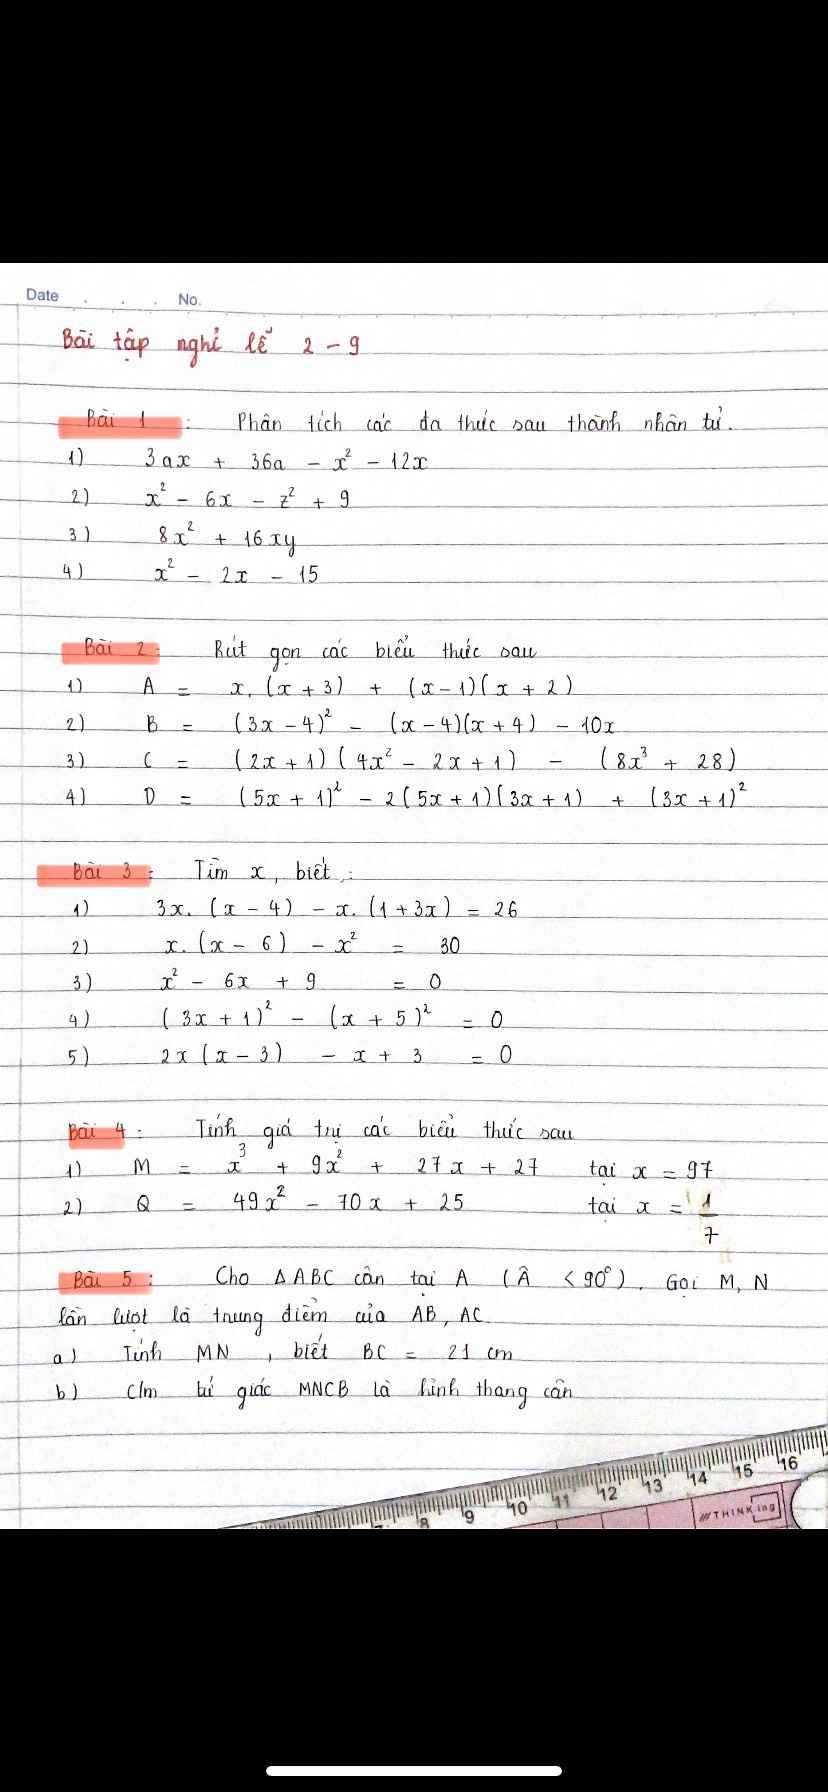 Date . . . No.
Bài tập nghỉ lễ 2 - 9
Bài 1 : Phân tích các đa thức sau thành nhân tử.
1) 3ax + 36a - x² - 12x
2) x² - 6x - z² + 9
3) 8x² + 16xy
4) x² - 2x - 15
Bài 2 : Rút gọn các biểu thức sau
1) A = x. (x + 3) + (x - 1)(x + 2)
2) B = (3x - 4)² - (x - 4)(x + 4) - 10x
3) C = (2x + 1)(4x² - 2x + 1) - (8x³ + 28)
4) D = (5x + 1)² - 2(5x + 1)(3x + 1) + (3x + 1)²
Bài 3 : Tìm x, biết :
1) 3x. (x - 4) - x. (1 + 3x) = 26
2) x. (x - 6) - x² = 30
3) x² - 6x + 9 = 0
4) (3x + 1)² - (x + 5)² = 0
5) 2x (x - 3) - x + 3 = 0
Bài 4 : Tính giá trị các biểu thức sau
1) M = x³ + 9x² + 27x + 27 tại x = 97
2) Q = 49x² - 70x + 25 tại x = 1/7
Bài 5 : Cho ΔABC cân tại A (Â < 90°). Gọi M, N
lần lượt là trung điểm của AB, AC
a) Tính MN, biết BC = 21 cm
b) C/m tứ giác MNCB là hình thang cân
8 9 10 11 12 13 14 15 16
THINKing